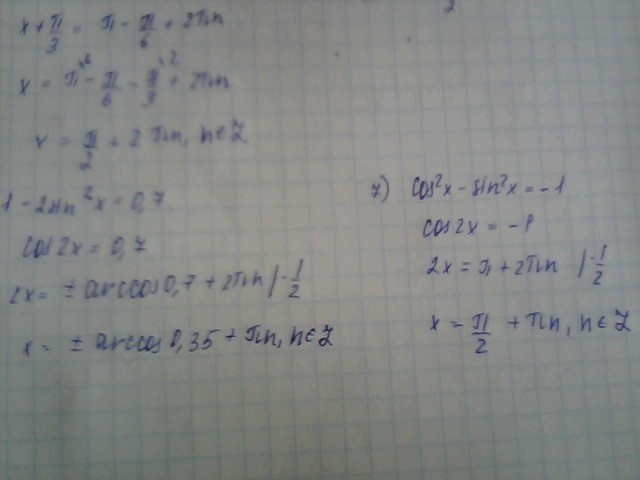 x + π/3 = π - π/6 + 2πn
x = π\6 - π/6 - π/3\2 + 2πn
x = π/2 + 2πn, n ∈ Z
1 - 2sin²x = 0,7
cos2x = 0,7
2x = ± arccos0,7 + 2πn |·1/2
x = ± arccos0,35 + πn, n ∈ Z
7) cos²x - sin²x = -1
cos2x = -1
2x = π + 2πn |·1/2
x = π/2 + πn, n ∈ Z